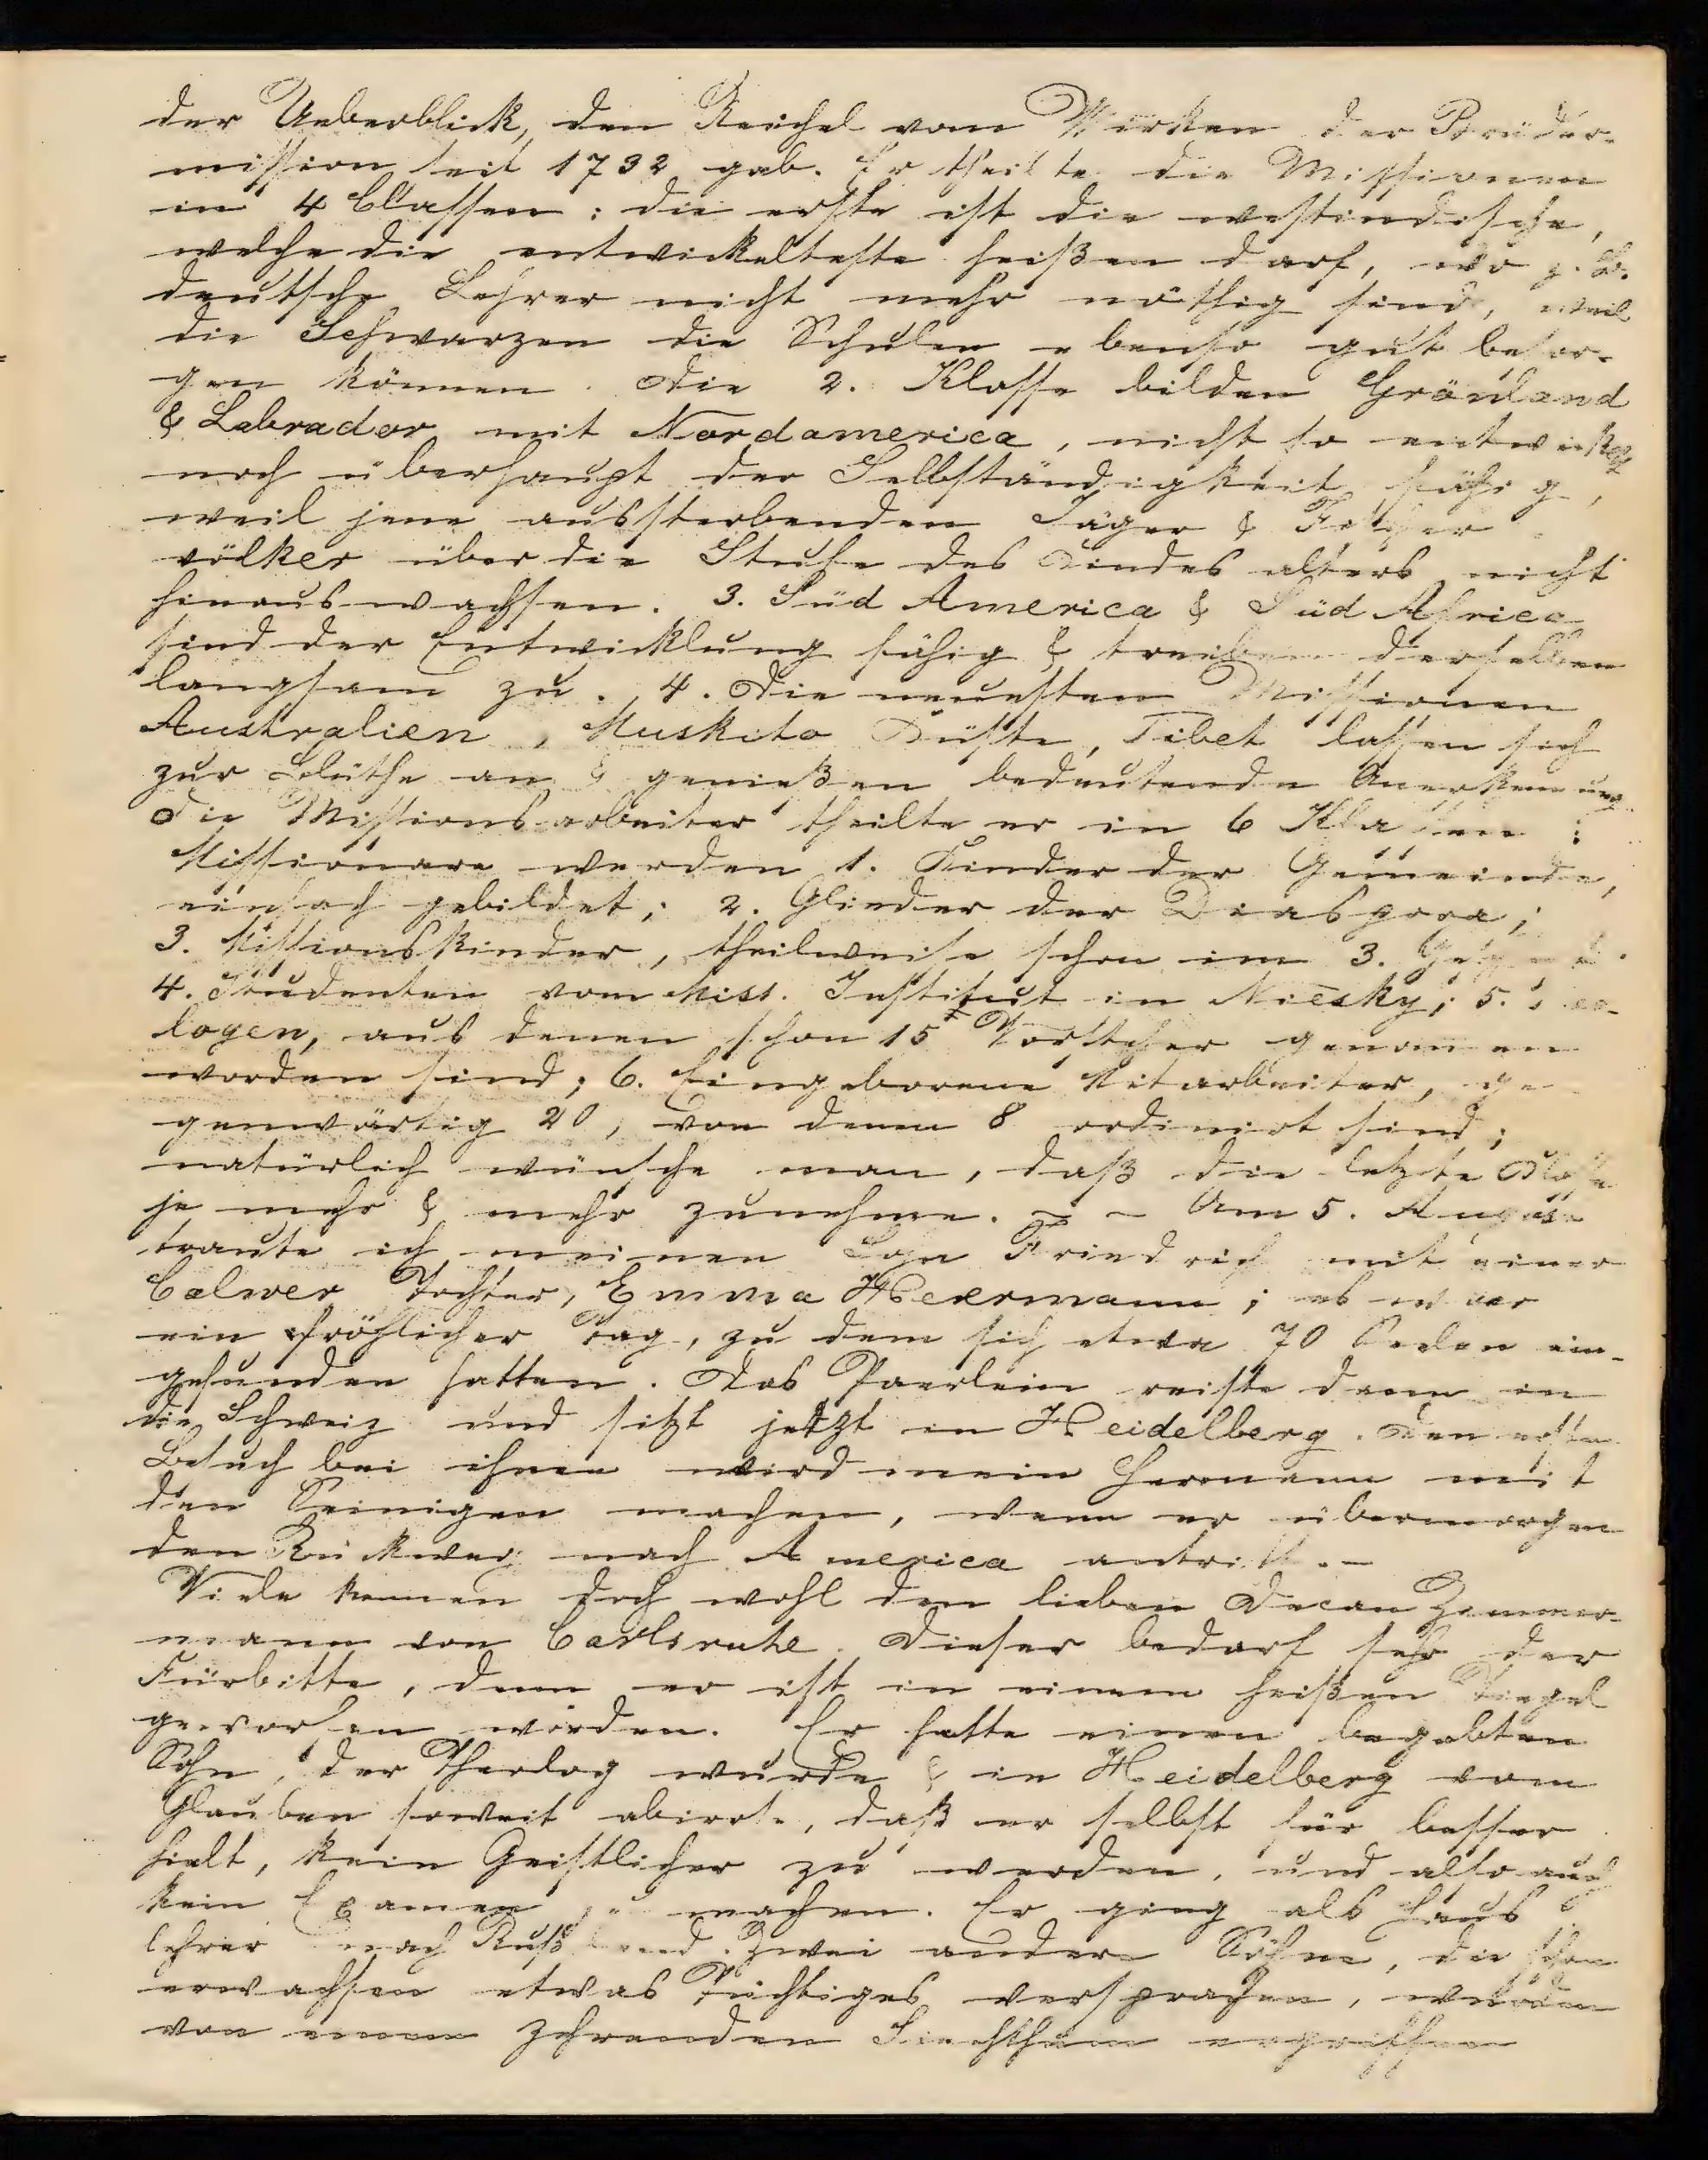 der Ueberblick, den Reichel vom Wirken der Brüder-
mission seit 1732 gab. Er theilte die Missionen
in 4 Classen: die erste ist die westindische,
welche die entwickelteste heißen darf, wo z. B.
deutsche Lehrer nicht mehr nöthig sind, weil
die Schwarzen die Schulen ebenso gut besor-
gen können. Die 2. Klasse bilden Grönland
& Labrador mit Nordamerica, nicht so entwickelt
noch überhaupt der Selbständigkeit fähig,
weil jene aussterbenden Jäger & Fischer
völker über die Stufe des Kindesalters nicht
hinauswachsen. 3. Süd America & Süd Africa
sind der Entwicklung fähig & treiben derselben
langsam zu. 4. Die neuesten Missionen
Australien, Muskito Küste, Tibet lassen sich
zur Blüthe an & genießen bedeutende Anerkennung
Die Missionsarbeiter theilte er in 6 Klassen:
Missionare werden 1. Kinder der Gemeinde,
einfach gebildet; 2. Glieder der Diaspora;
3. Missionskinder, theilweise schon im 3.
4. Studenten vom Miss. Institut in Niesky; 5.
logen, aus denen schon 15 Vorsteher genommen
worden sind; 6. Eingeborene Mitarbeiter, ge-
genwärtig 20, von denen 8 ordinirt sind;
natürlich wünsche man, daß die letzte Klasse
je mehr & mehr zunehme. - - Am 5. August
traute ich meinen Sohn Friedrich mit einer
Calwer Tochter, Emma Heermann; es war
ein fröhlicher Tag, zu dem sich etwa 70 Seelen ein-
gefunden hatten. Das Paerlein reiste dann in
die Schweiz und sitzt jetzt in Heidelberg. Den ersten
Besuch bei ihnen wird mein Hermann mit
den Seinigen machen, wenn er übermorgen
den Rückweg nach America antritt. -
Viele kennen doch wohl den lieben Decan Zimmer-
mann von Carlsruhe. Dieser bedarf sehr der
Fürbitte, denn er ist in einem heißen Tiegel
geworfen worden. Er hatte einen begabten
Sohn, der Theolog wurde & in Heidelberg vom
Glauben soweit abirrte, daß er selbst für besser
hielt, kein Geistlicher zu werden, und also auch
kein Examen zu machen. Er ging als Haus
lehrer nach Rußland. Zwei andere Söhne, die schon
erwachsen etwas Tüchtiges versprachen, wurden
von einem zehrenden Siechthum ergriffen